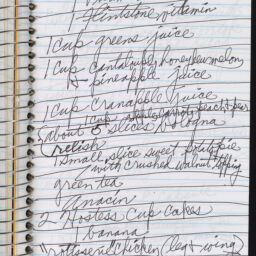 1
Flintstone vitamin
1 cup greens juice
1 cup cantaloupe, honeydew melon,
& pineapple juice
1 cup cranapple juice
1 cup apple, carrot, peach & pear
about 5 slices bologna
relish
1 small slice sweet potato pie
with crushed walnut topping
green tea
Anacin
2 Hostess Cup Cakes
1 banana
"rotisserie" chicken (leg & wing)